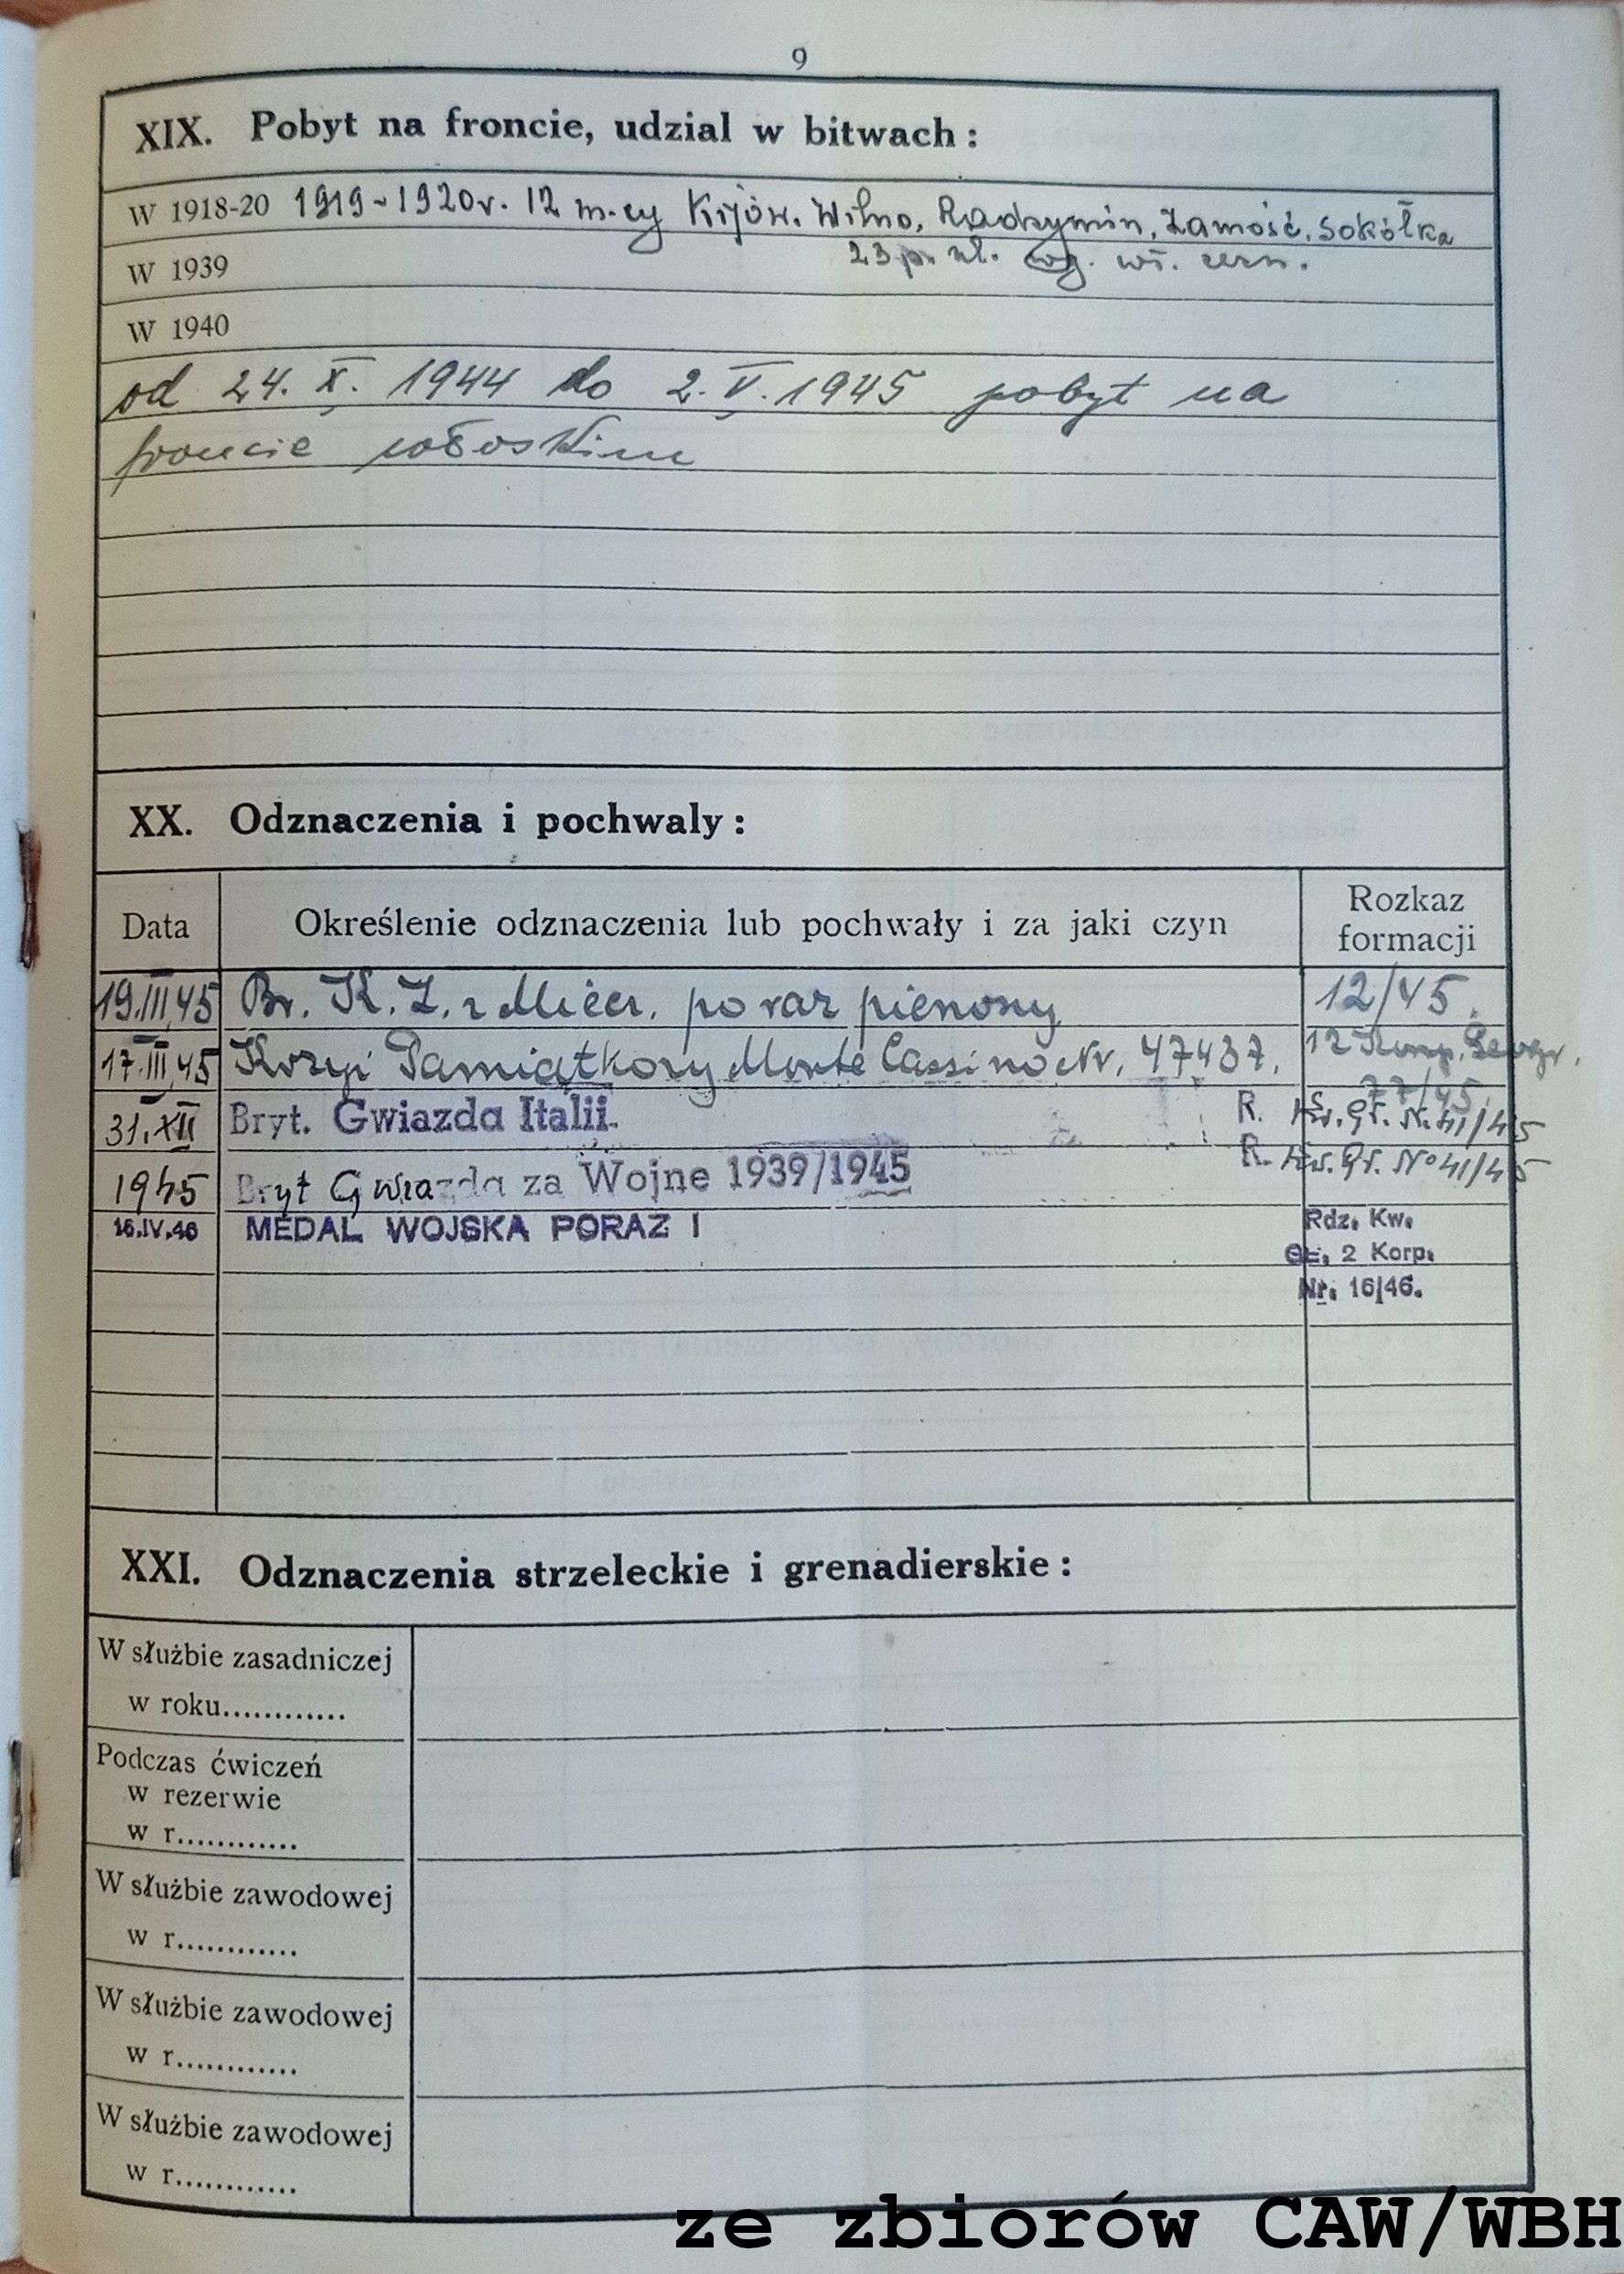 9
XIX. Pobyt na froncie, udzial w bitwach :
W 1918-20 1919-1920r. 12 m-cy Kijów. Wilno, Radzymin, Zamość, Sokółka
W 1939 23 p. uł. wg. wł. zezn.
W 1940
od 24. X. 1944 do 2. V. 1945 pobyt na
froncie włoskim
XX. Odznaczenia i pochwaly :
Data Określenie odznaczenia lub pochwały i za jaki czyn Rozkaz formacji
19.III.45 Br. K. Z. z Miecz. po raz pierwszy 12/45.
17.III.45 Krzyż Pamiątkowy Monte Cassino Nr. 47437. 12 Komp.
77/45.
31.XII Bryt. Gwiazda Italii. R. Kw. Gł. N. 41/45
1945 Bryt Gwiazda za Wojne 1939/1945 R. Kw. Gł. No 41/45
16.IV.46 MEDAL WOJSKA PORAZ I Rdz. Kw.
Gł. 2 Korp.
Nr. 16/46.
XXI. Odznaczenia strzeleckie i grenadierskie :
W służbie zasadniczej
w roku............
Podczas ćwiczeń
w rezerwie
w r............
W służbie zawodowej
w r............
W służbie zawodowej
w r............
W służbie zawodowej
w r............
ze zbiorów CAW/WBH